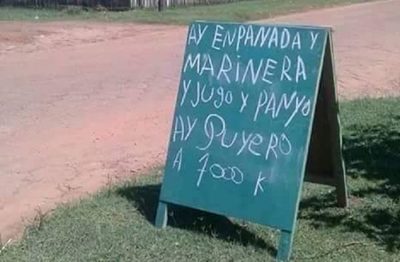 AY ENPANADA Y
MARINERA
Y JUGO Y PANYO
AY PUYERO
A 7000 K